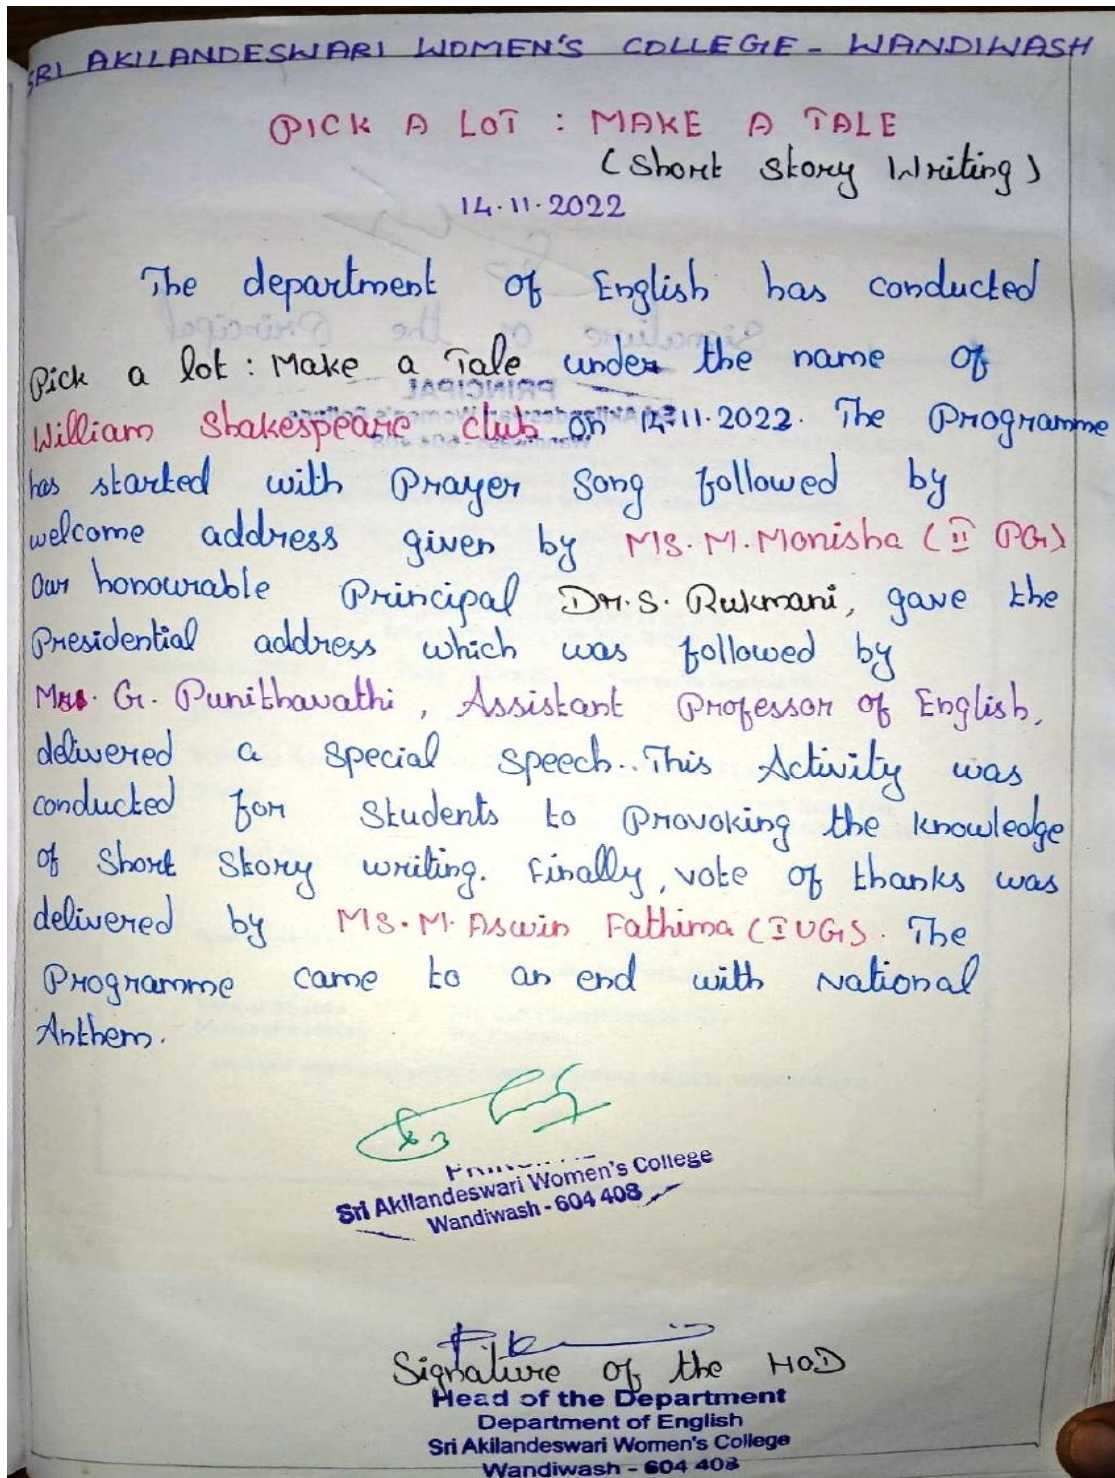 SRI AKILANDESWARI WOMEN'S COLLEGE - WANDIWASH
PICK A LOT : MAKE A TALE
(Short Story Writing)
14.11.2022
The department of English has conducted
Pick a lot : Make a Tale under the name of
William Shakespeare club on 14.11.2022. The Programme
has started with Prayer Song followed by
welcome address given by MS. M. Monisha (II PG)
Our honourable Principal Dr. S. Rukmani, gave the
Presidential address which was followed by
Mrs. G. Punithavathi, Assistant Professor of English,
delivered a special speech.. This Activity was
conducted for Students to Provoking the knowledge
of Short Story writing. Finally, vote of thanks was
delivered by MS. M. Aswin Fathima (I UG). The
Programme came to an end with National
Anthem.
Sri Akilandeswari Women's College
Wandiwash - 604 408
Signature of the HOD
Head of the Department
Department of English
Sri Akilandeswari Women's College
Wandiwash - 604 408